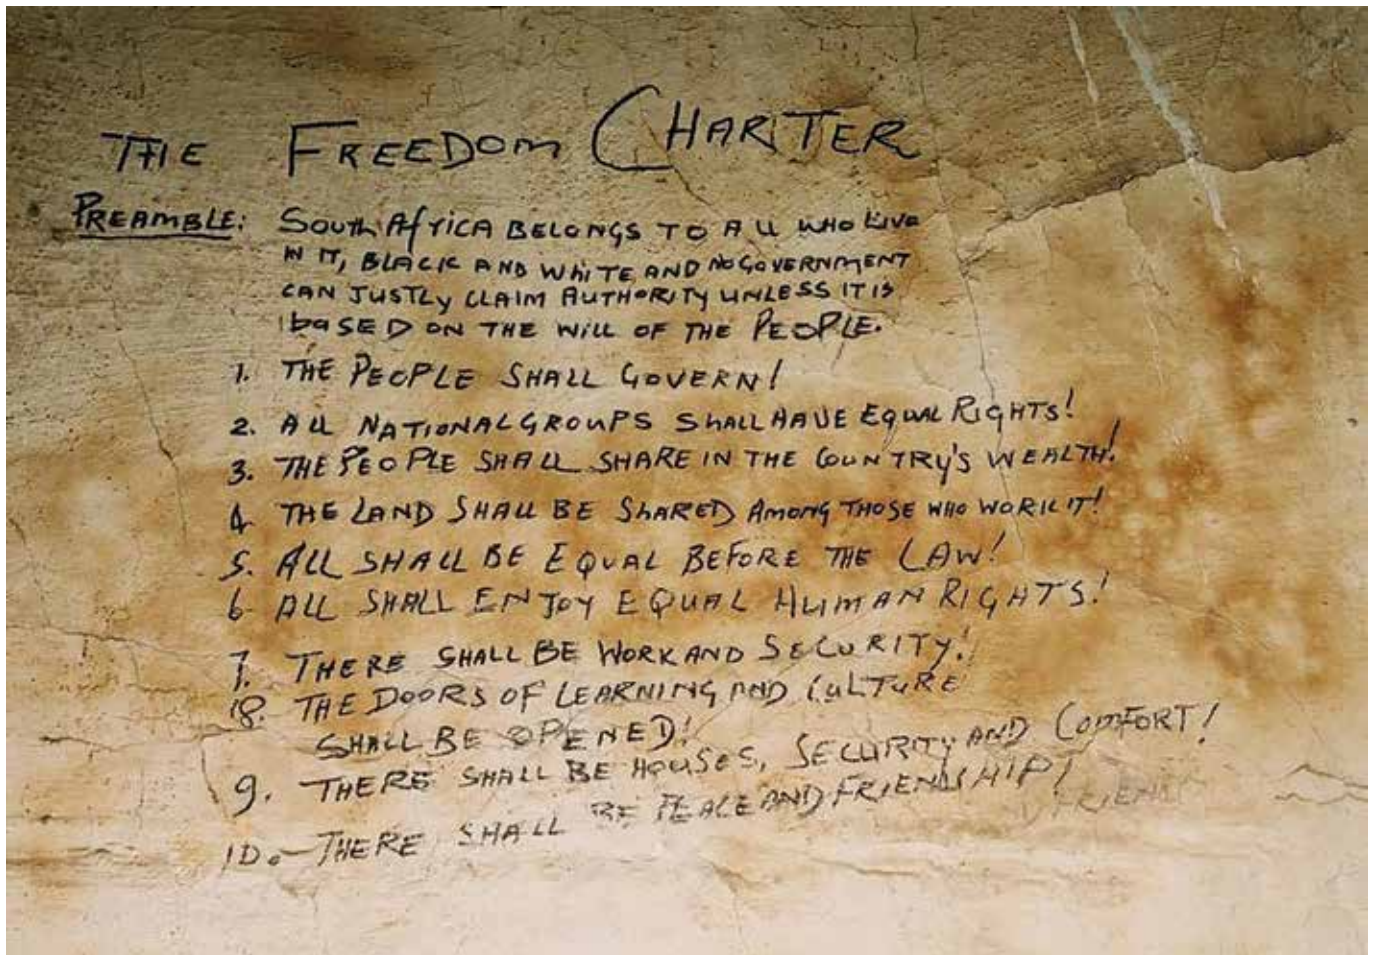 THE FREEDOM CHARTER
PREAMBLE: SOUTH AFRICA BELONGS TO ALL WHO LIVE
IN IT, BLACK AND WHITE, AND NO GOVERNMENT
CAN JUSTLY CLAIM AUTHORITY UNLESS IT IS
bASED ON THE WILL OF THE PEOPLE.
1. THE PEOPLE SHALL GOVERN!
2. ALL NATIONAL GROUPS SHALL HAVE EQUAL RIGHTS!
3. THE PEOPLE SHALL SHARE IN THE COUNTRY'S WEALTH!
4 THE LAND SHALL BE SHARED AMONG THOSE WHO WORK IT!
5. ALL SHALL BE EQUAL BEFORE THE LAW!
6 ALL SHALL ENJOY EQUAL HUMAN RIGHTS!
7. THERE SHALL BE WORK AND SECURITY!
8. THE DOORS OF LEARNING AND CULTURE
SHALL BE OPENED!
9. THERE SHALL BE HOUSES, SECURITY AND COMFORT!
10. THERE SHALL BE PEACE AND FRIENDSHIP!